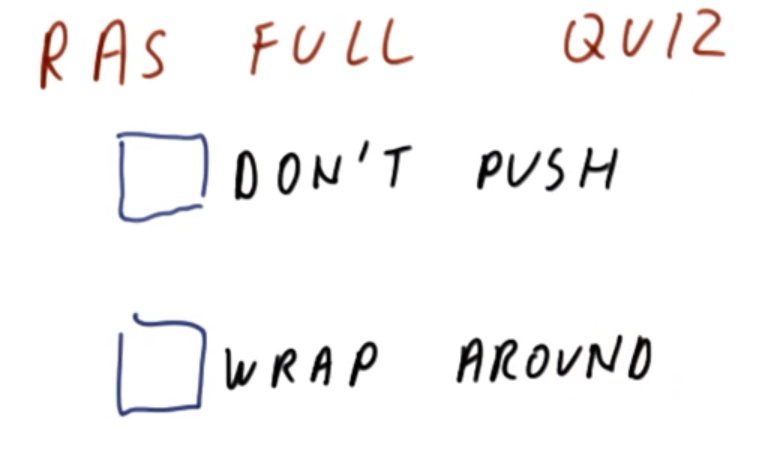 RAS FULL QUIZ
DON'T PUSH
WRAP AROUND